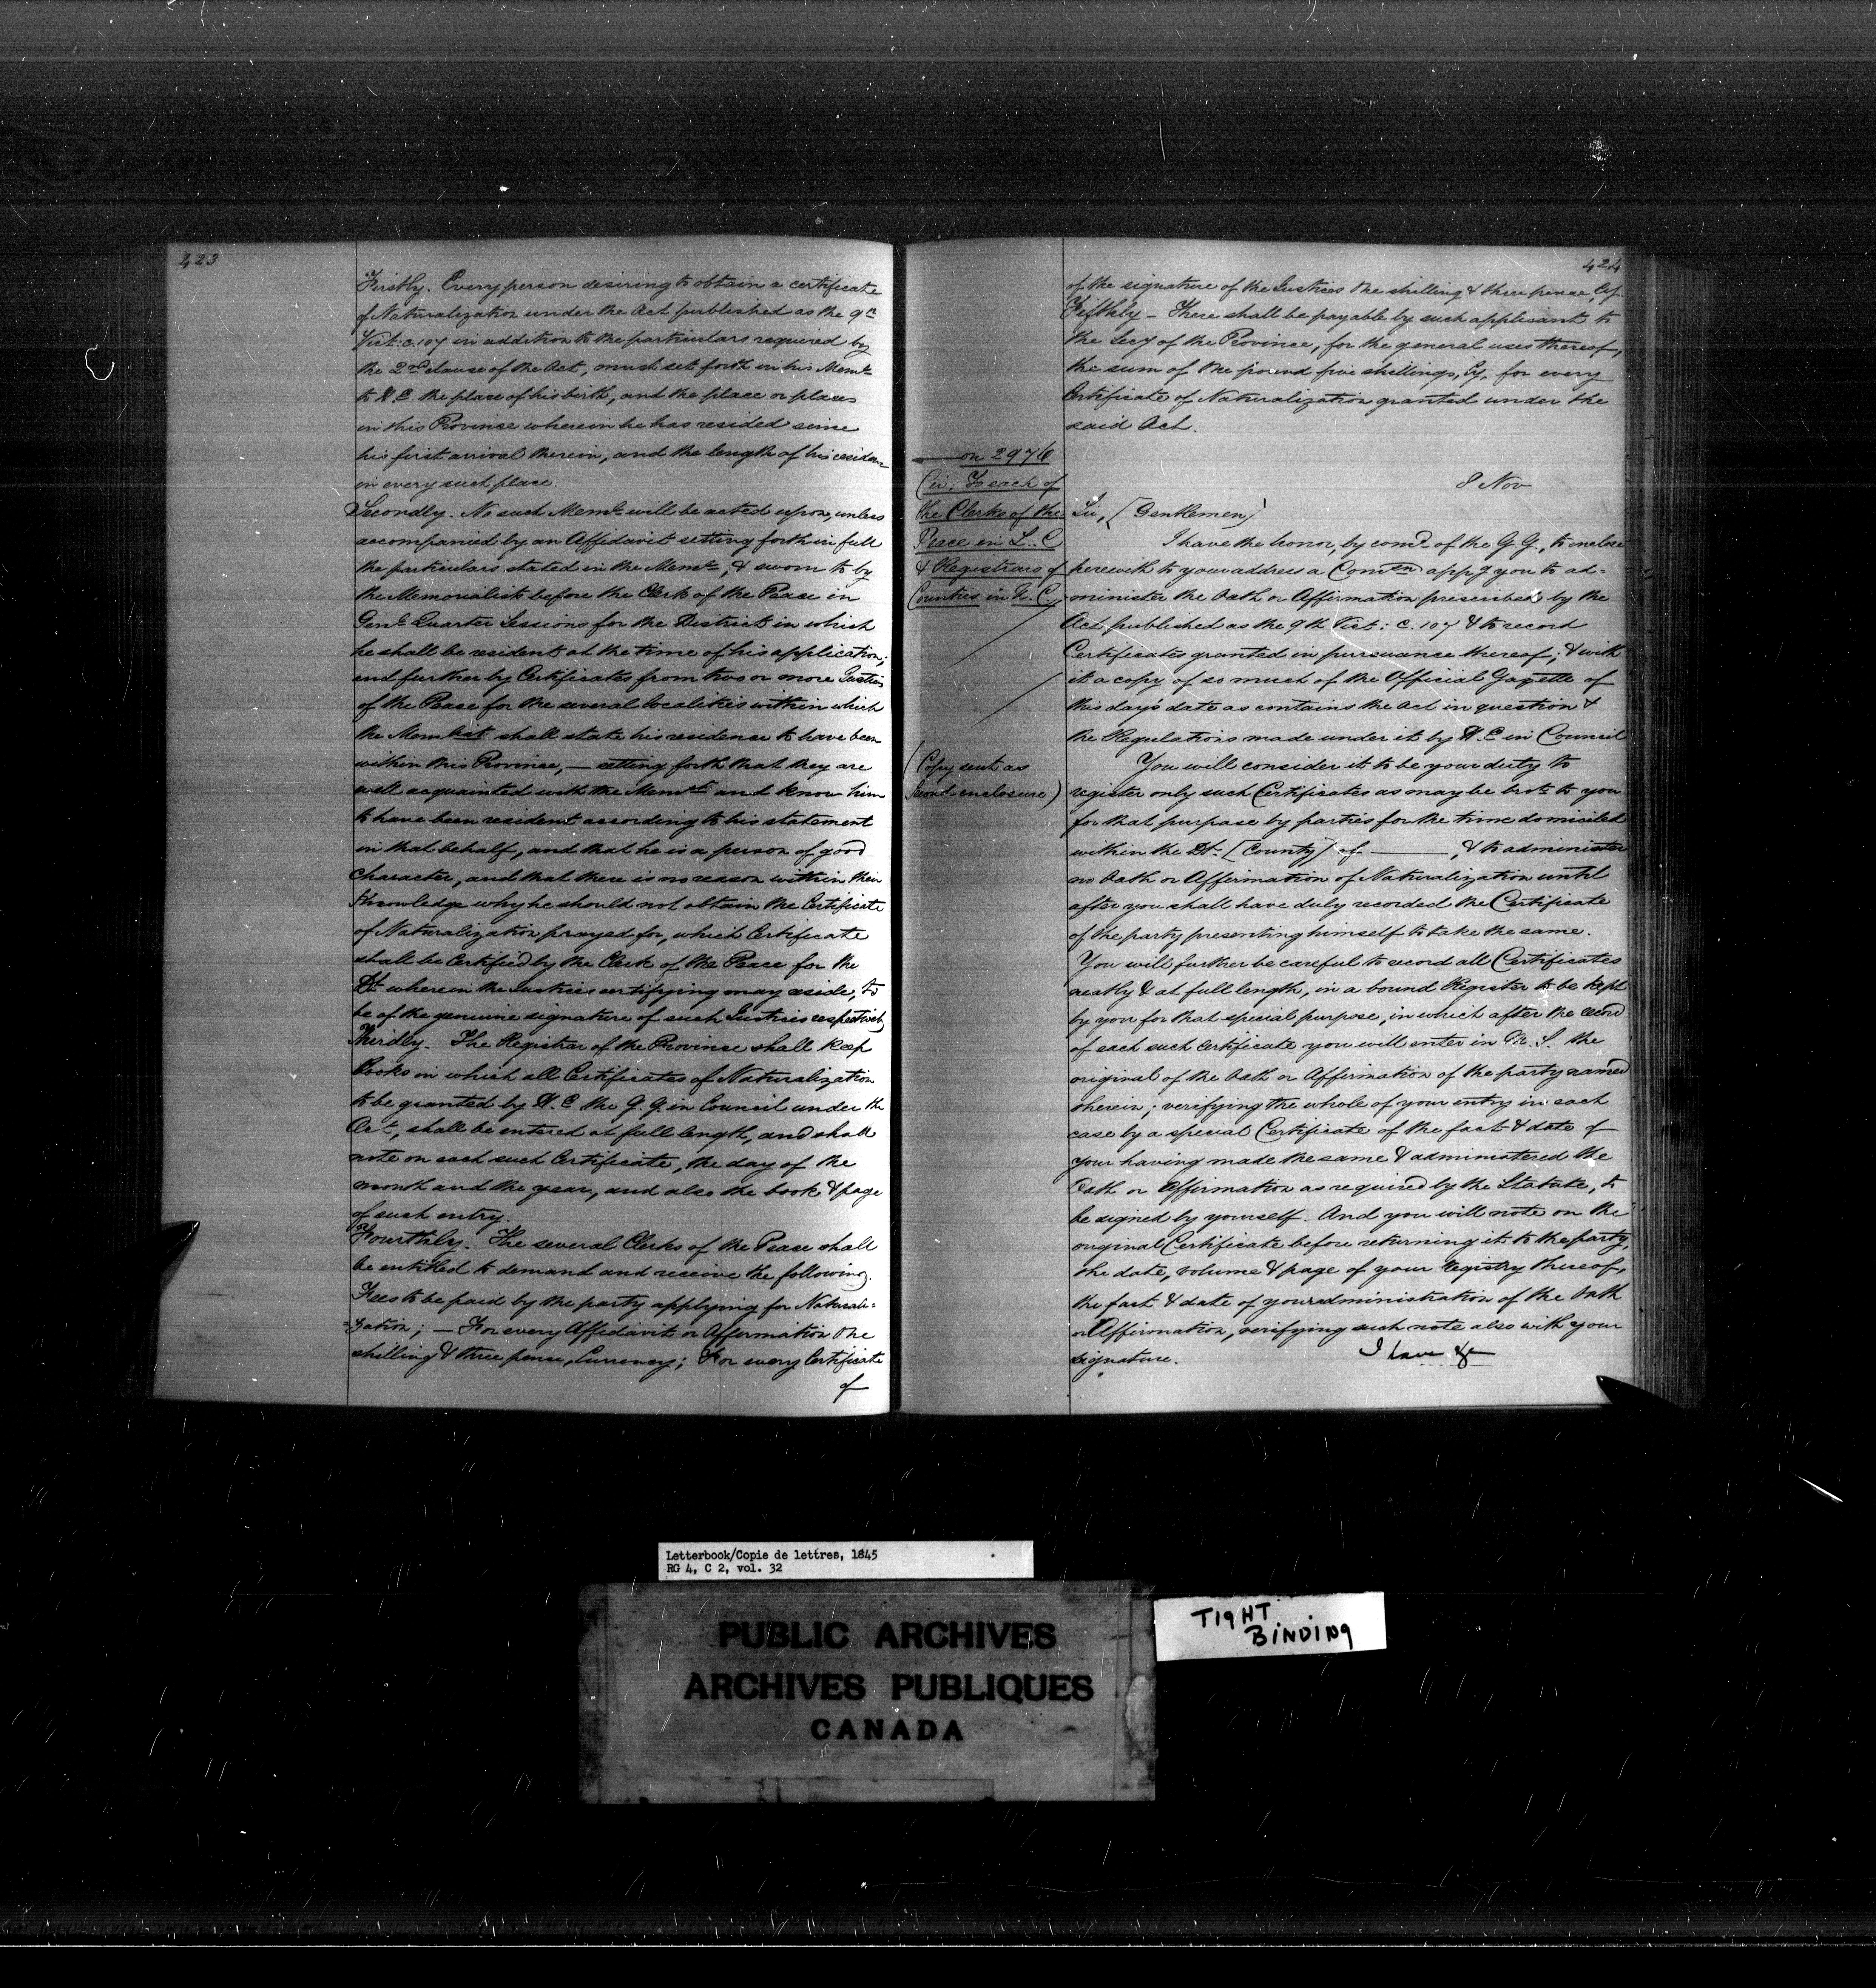 423
Firstly. Every person desiring to obtain a certificate
of Naturalization under the Act published as the 9th
Vict: c. 107 in addition to the particulars required by
the 2nd clause of the Act, must set forth in his Meml
to H.E. the place of his birth, and the place or places
in this Province wherein he has resided since
his first arrival therein, and the length of his residence
in every such place.
Secondly. No such Meml will be acted upon, unless
accompanied by an Affidavit setting forth in full
the particulars stated in the Meml, & sworn to by
the Memorialist before the Clerk of the Peace in
Genl Quarter Sessions for the District in which
he shall be resident at the time of his application;
and further by Certificates from two or more Justices
of the Peace for the several localities within which
the Memlist shall state his residence to have been
within this Province, — setting forth that they are
well acquainted with the Memlst and know him
to have been resident according to his statement
in that behalf, and that he is a person of good
character, and that there is no reason within their
knowledge why he should not obtain the Certificate
of Naturalization prayed for, which Certificate
shall be Certified by the Clerk of the Peace for the
Dt wherein the Justices certifying may reside, to
be of the genuine signature of such Justices respectively
Thirdly. The Registrar of the Province shall keep
Books in which all Certificates of Naturalization
to be granted by H.E. the G.G. in Council under the
Act, shall be entered at full length, and shall
note on each such Certificate, the day of the
month and the year, and also the book & page
of such entry.
Fourthly. The several Clerks of the Peace shall
be entitled to demand and receive the following
Fees to be paid by the party applying for Naturali-
=zation; — For every Affidavit or Affirmation One
shilling & three pence, Currency; For every Certificate
of
424
of the signature of the Justices One shilling & three pence, Cy.
Fifthly — There shall be payable by such applicant to
the Secy of the Province, for the general uses thereof,
the sum of One pound five shillings, Cy, for every
Certificate of Naturalization granted under the
said Act.
on 2976
Cir. To each of
the Clerks of the
Peace in L.C
& Registrars of
Counties in L.C.
8 Nov
Sir, [Gentlemen]
I have the honor, by comd of the G.G., to inclose
herewith to your address a Comn appg you to ad-
minister the Oath or Affirmation prescribed by the
Act published as the 9th Vict: c. 107 & to record
Certificates granted in pursuance thereof; & with
it a copy of so much of the Official Gazette of
this day's date as contains the Act in question &
the Regulations made under it by H.E in Council
(Copy sent as
second enclosure)
You will consider it to be your duty to
register only such Certificates as may be brot to you
for that purpose by parties for the time domiciled
within the Dt. [County] of ———, & to administer
no Oath or Affirmation of Naturalization until
after you shall have duly recorded the Certificate
of the party presenting himself to take the same.
You will further be careful to record all Certificates
neatly & at full length, in a bound Register to be kept
by you for that special purpose, in which after the record
of each such Certificate you will enter in M.S. the
original of the Oath or Affirmation of the party named
therein; verifying the whole of your entry in each
case by a special Certificate of the fact & date of
your having made the same & administered the
Oath or Affirmation as required by the Statute, to
be signed by yourself. And you will note on the
original Certificate before returning it to the party,
the date, volume & page of your Registry thereof,
the fact & date of your administration of the Oath
or Affirmation, verifying such note also with your
signature.
I have &c
Letterbook/Copie de lettres, 1845
RG 4, C 2, vol. 32
PUBLIC ARCHIVES
ARCHIVES PUBLIQUES
CANADA
TIGHT
BINDING